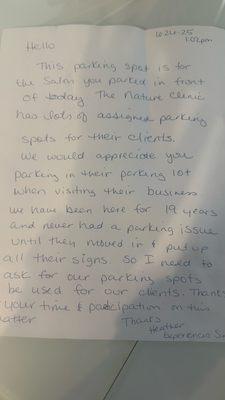 6-24-25
1:02pm
Hello
This parking spot is for
the Salon you parked in front
of today The Nature Clinic
has lots of assigned parking
spots for their clients.
We would appreciate you
parking in their parking lot
when visiting their business
we have been here for 19 years
and never had a parking issue
until they moved in & put up
all their signs. So I need to
ask for our parking spots
be used for our clients. Thanks
your time & paticipation on this
atter
Thanks
Heather
Experiencia